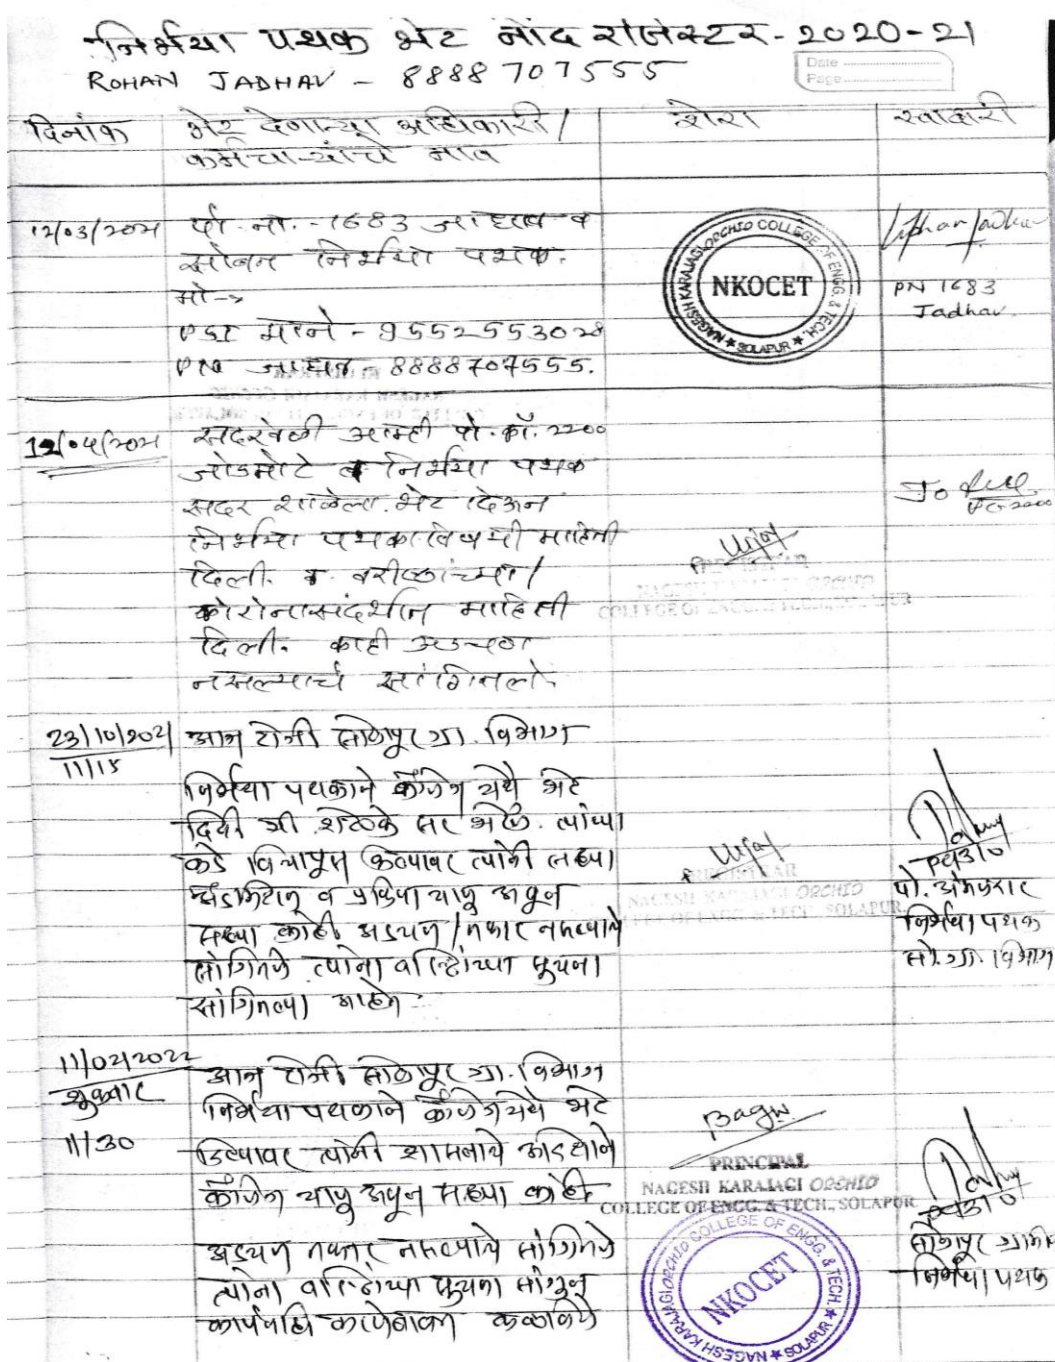 निर्भया पथक भेट नोंद रजिस्टर - 2020-21
ROHAN JADHAV - 8888707555
Date
Page
दिनांक भेट देणाऱ्या अधिकारी / शेरा स्वाक्षरी
कर्मचाऱ्यांचे नाव
12/03/2021 पो. ना. - 1683 जाधव व
निर्भया पथक.
मो →
PSI माने - 9552553028
PN जाधव - 8888707555.
NAGESH KARAJAGI ORCHID COLLEGE OF ENGG. & TECH. ★ SOLAPUR ★
NKOCET
PN 1683
Jadhav
12/04/2021 सदरवेळी आम्ही पो. कॉ. 2200
जोडमोटे व निर्भया पथक
सदर शाळेला भेट देऊन
निर्भया पथकाविषयी माहिती
दिली. व वरीष्ठांच्या /
कोरोनासंदर्भात माहिती
दिली. काही अडचण
नसल्याचे सांगितले.
REGISTRAR
NAGESH KARAJAGI ORCHID
COLLEGE OF ENGG. & TECH., SOLAPUR
23/10/2021 आज रोजी सोलापूर ग्रा. विभाग
11/15
निर्भया पथकाने कॉलेज येथे भेट
दिली श्री शेळके सर भेटले. त्यांच्या
कडे विचारपूस केल्यावर त्यांनी सध्या
ॲडमिशन व प्रक्रिया चालू असून
सध्या काही अडचण / तक्रार नसल्याचे
सांगितले त्यांना वरिष्ठांच्या सूचना
सांगितल्या आहेत.
REGISTRAR
NAGESH KARAJAGI ORCHID
COLLEGE OF ENGG. & TECH., SOLAPUR
PC/310
पो. अंमलदार
निर्भया पथक
सो. ग्रा. विभाग
11/02/2022 आज रोजी सोलापूर ग्रा. विभाग
शुक्रवार निर्भया पथकाने कॉलेज येथे भेट
11/30 दिल्यावर त्यांनी शासनाचे आदेशाने
कॉलेज चालू असून सध्या काही
अडचण तक्रार नसल्याचे सांगितले
त्यांना वरिष्ठांच्या सूचना सांगून
कार्यवाही करणेबाबत कळविले
PRINCIPAL
NAGESH KARAJAGI ORCHID
COLLEGE OF ENGG. & TECH., SOLAPUR
NAGESH KARAJAGI ORCHID COLLEGE OF ENGG. & TECH. ★ SOLAPUR ★
NKOCET
PC/310
सोलापूर ग्रामीण
निर्भया पथक